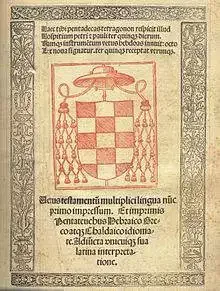 Haec tibi pentadecas tetragonon respicit illud
Hospitium petri & pauli ter quinque dierum.
Namque instrumentum vetus hebdoas innuit: octo
Lex nova signatur. ter quinque receptat utrumque.
Vetus testamentum multiplici lingua nunc
primo impressum. Et imprimis
Pentateuchus Hebraico Gre-
co atque Chaldaico idioma-
te. Adiuncta unicuique sua
latina interpreta-
tione.